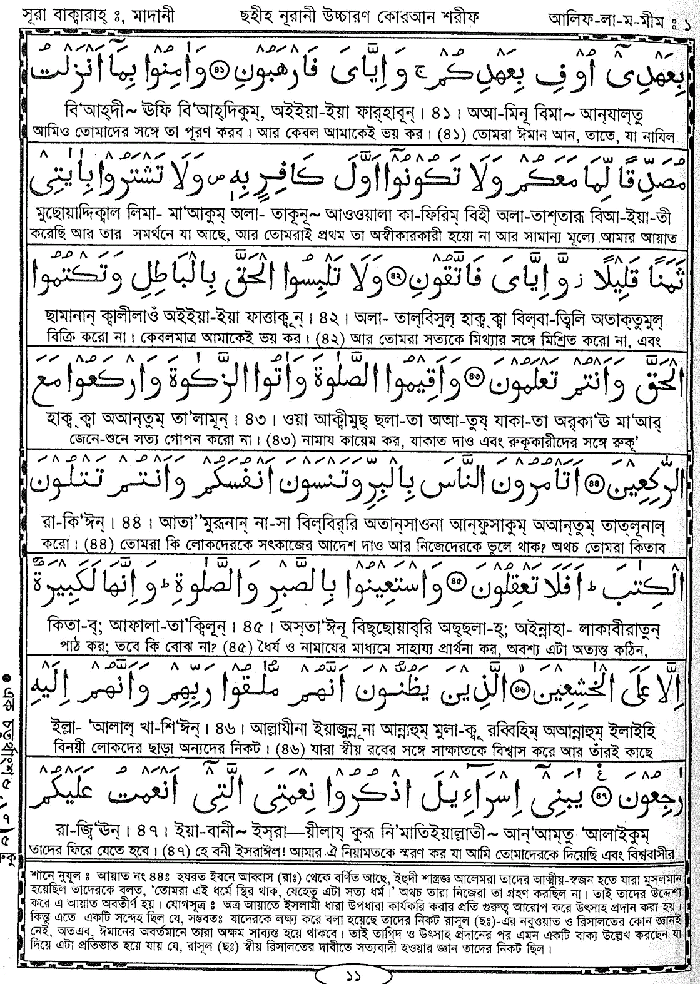 সূরা বাক্বারাহ্ ঃ মাদানী
ছহীহ নূরানী উচ্চারণ কোরআন শরীফ
আলিফ-লা-ম-মীম ঃ ১
بِعَهْدِىٓ اُوْفِ بِعَهْدِكُمْ ۚ وَاِيَّاىَ فَارْهَبُوْنِ ۝ وَاٰمِنُوْا بِمَآ اَنْزَلْتُ
বি'আহ্দী~ ঊফি বি'আহ্দিকুম্, অইইয়া-ইয়া ফার্হাবূন্। ৪১। অআ-মিনূ বিমা~ আন্যাল্তু
আমিও তোমাদের সঙ্গে তা পূরণ করব। আর কেবল আমাকেই ভয় কর। (৪১) তোমরা ঈমান আন, তাতে, যা নাযিল
مُصَدِّقًا لِّمَا مَعَكُمْ وَلَا تَكُوْنُوْٓا اَوَّلَ كَافِرٍۢ بِهٖ ۪ وَلَا تَشْتَرُوْا بِاٰيٰتِىْ
মুছোয়াদ্দিক্বাল লিমা- মা'আকুম্ অলা- তাকূনূ~ আওওয়ালা কা-ফিরিম্ বিহী অলা-তাশ্তারূ বিআ-ইয়া-তী
করেছি আর তার সমর্থনে যা আছে, আর তোমরাই প্রথম তা অস্বীকারকারী হয়ো না আর সামান্য মূল্যে আমার আয়াত
ثَمَنًا قَلِيْلًا ز وَّاِيَّاىَ فَاتَّقُوْنِ ۝ وَلَا تَلْبِسُوا الْحَقَّ بِالْبَاطِلِ وَتَكْتُمُوا
ছামানান্ ক্বালীলাওঁ অইইয়া-ইয়া ফাত্তাক্বূন্। ৪২। অলা- তাল্বিসুল্ হাক্ব্ক্বা বিল্বা-ত্বিলি অতাক্তুমুল্
বিক্রি করো না। কেবলমাত্র আমাকেই ভয় কর। (৪২) আর তোমরা সত্যকে মিথ্যার সঙ্গে মিশ্রিত করো না, এবং
الْحَقَّ وَاَنْتُمْ تَعْلَمُوْنَ ۝ وَاَقِيْمُوا الصَّلٰوةَ وَاٰتُوا الزَّكٰوةَ وَارْكَعُوْا مَعَ
হাক্ব্ক্বা অআন্তুম্ তা'লামূন্। ৪৩। ওয়া আক্বীমুছ্ ছলা-তা অআ-তুয্ যাকা-তা অর্কা'ঊ মা'আর্
জেনে-শুনে সত্য গোপন করো না। (৪৩) নামায কায়েম কর, যাকাত দাও এবং রুকূকারীদের সঙ্গে রুকূ'
الرّٰكِعِيْنَ ۝ اَتَاْمُرُوْنَ النَّاسَ بِالْبِرِّ وَتَنْسَوْنَ اَنْفُسَكُمْ وَاَنْتُمْ تَتْلُوْنَ
রা-কি'ঈন্। ৪৪। আতা"মুরূনান্ না-সা বিল্বির্রি অতান্সাওনা আন্ফুসাকুম্ অআন্তুম্ তাত্লূনাল্
করো। (৪৪) তোমরা কি লোকদেরকে সৎকাজের আদেশ দাও আর নিজেদেরকে ভুলে থাক? অথচ তোমরা কিতাব
الْكِتٰبَ ۗ اَفَلَا تَعْقِلُوْنَ ۝ وَاسْتَعِيْنُوْا بِالصَّبْرِ وَالصَّلٰوةِ ۗ وَاِنَّهَا لَكَبِيْرَةٌ
কিতা-ব্; আফালা-তা'ক্বিলূন্। ৪৫। অস্তা'ঈনূ বিছ্ছোয়াব্রি অছ্ছলা-হ্; অইন্নাহা- লাকাবীরাতুন্
পাঠ কর; তবে কি বোঝ না? (৪৫) ধৈর্য ও নামাযের মাধ্যমে সাহায্য প্রার্থনা কর, অবশ্য এটা অত্যন্ত কঠিন,
اِلَّا عَلَى الْخٰشِعِيْنَ ۝ الَّذِيْنَ يَظُنُّوْنَ اَنَّهُمْ مُّلٰقُوْا رَبِّهِمْ وَاَنَّهُمْ اِلَيْهِ
ইল্লা- 'আলাল্ খা-শি'ঈন্। ৪৬। আল্লাযীনা ইয়াজুন্নূনা আন্নাহুম্ মুলা-ক্বূ রব্বিহিম্ অআন্নাহুম্ ইলাইহি
বিনয়ী লোকদের ছাড়া অন্যদের নিকট। (৪৬) যারা স্বীয় রবের সঙ্গে সাক্ষাতকে বিশ্বাস করে আর তাঁরই কাছে
رٰجِعُوْنَ ۝ يٰبَنِىْٓ اِسْرَآءِيْلَ اذْكُرُوْا نِعْمَتِىَ الَّتِىْٓ اَنْعَمْتُ عَلَيْكُمْ
রা-জ্বি'ঊন্। ৪৭। ইয়া-বানী~ ইস্রা—য়ীলায্ কুরূ নি'মাতিইয়াল্লাতী~ আন্'আম্তু 'আলাইকুম্
তাদের ফিরে যেতে হবে। (৪৭) হে বনী ইসরাঈল! আমার ঐ নিয়ামতকে স্মরণ কর যা আমি তোমাদেরকে দিয়েছি এবং বিশ্ববাসীর
শানে নুযূল ঃ আয়াত নং ৪৪ঃ হযরত ইবনে আব্বাস (রাঃ) থেকে বর্ণিত আছে, ইহুদী শাস্ত্রজ্ঞ আলেমরা তাদের আত্মীয়-স্বজন হতে যারা মুসলমান
হয়েছিল তাদেরকে বলত, 'তোমরা এই ধর্মে স্থির থাক, যেহেতু এটা সত্য ধর্ম' অথচ তারা নিজেরা তা গ্রহণ করছিল না। তাই তাদের উদ্দেশ্যে
করে এ আয়াত অবতীর্ণ হয়। যোগসূত্র ঃ অত্র আয়াতে ইসলামী ধারা উপধারা কার্যকরি করার প্রতি গুরুত্ব আরোপ করে উৎসাহ প্রদান করা হয়।
কিন্তু এতে একটি সন্দেহ ছিল যে, সম্ভবতঃ যাদেরকে লক্ষ্য করে বলা হয়েছে তাদের নিকট রাসূল (ছঃ)-এর নবুওয়াত ও রিসালতের কোন জ্ঞানই
নেই, অতএব, ঈমানের অবর্তমানে তারা অক্ষম সাব্যস্ত হয়ে থাকবে। তাই তাগিদ ও উৎসাহ প্রদানের পর এমন একটি বাক্য উল্লেখ করছেন যা
দিয়ে এটা প্রতিভাত হয়ে যায় যে, রাসূল (ছঃ) স্বীয় রিসালতের দাবীতে সত্যবাদী হওয়ার জ্ঞান তাদের নিকট ছিল।
১১